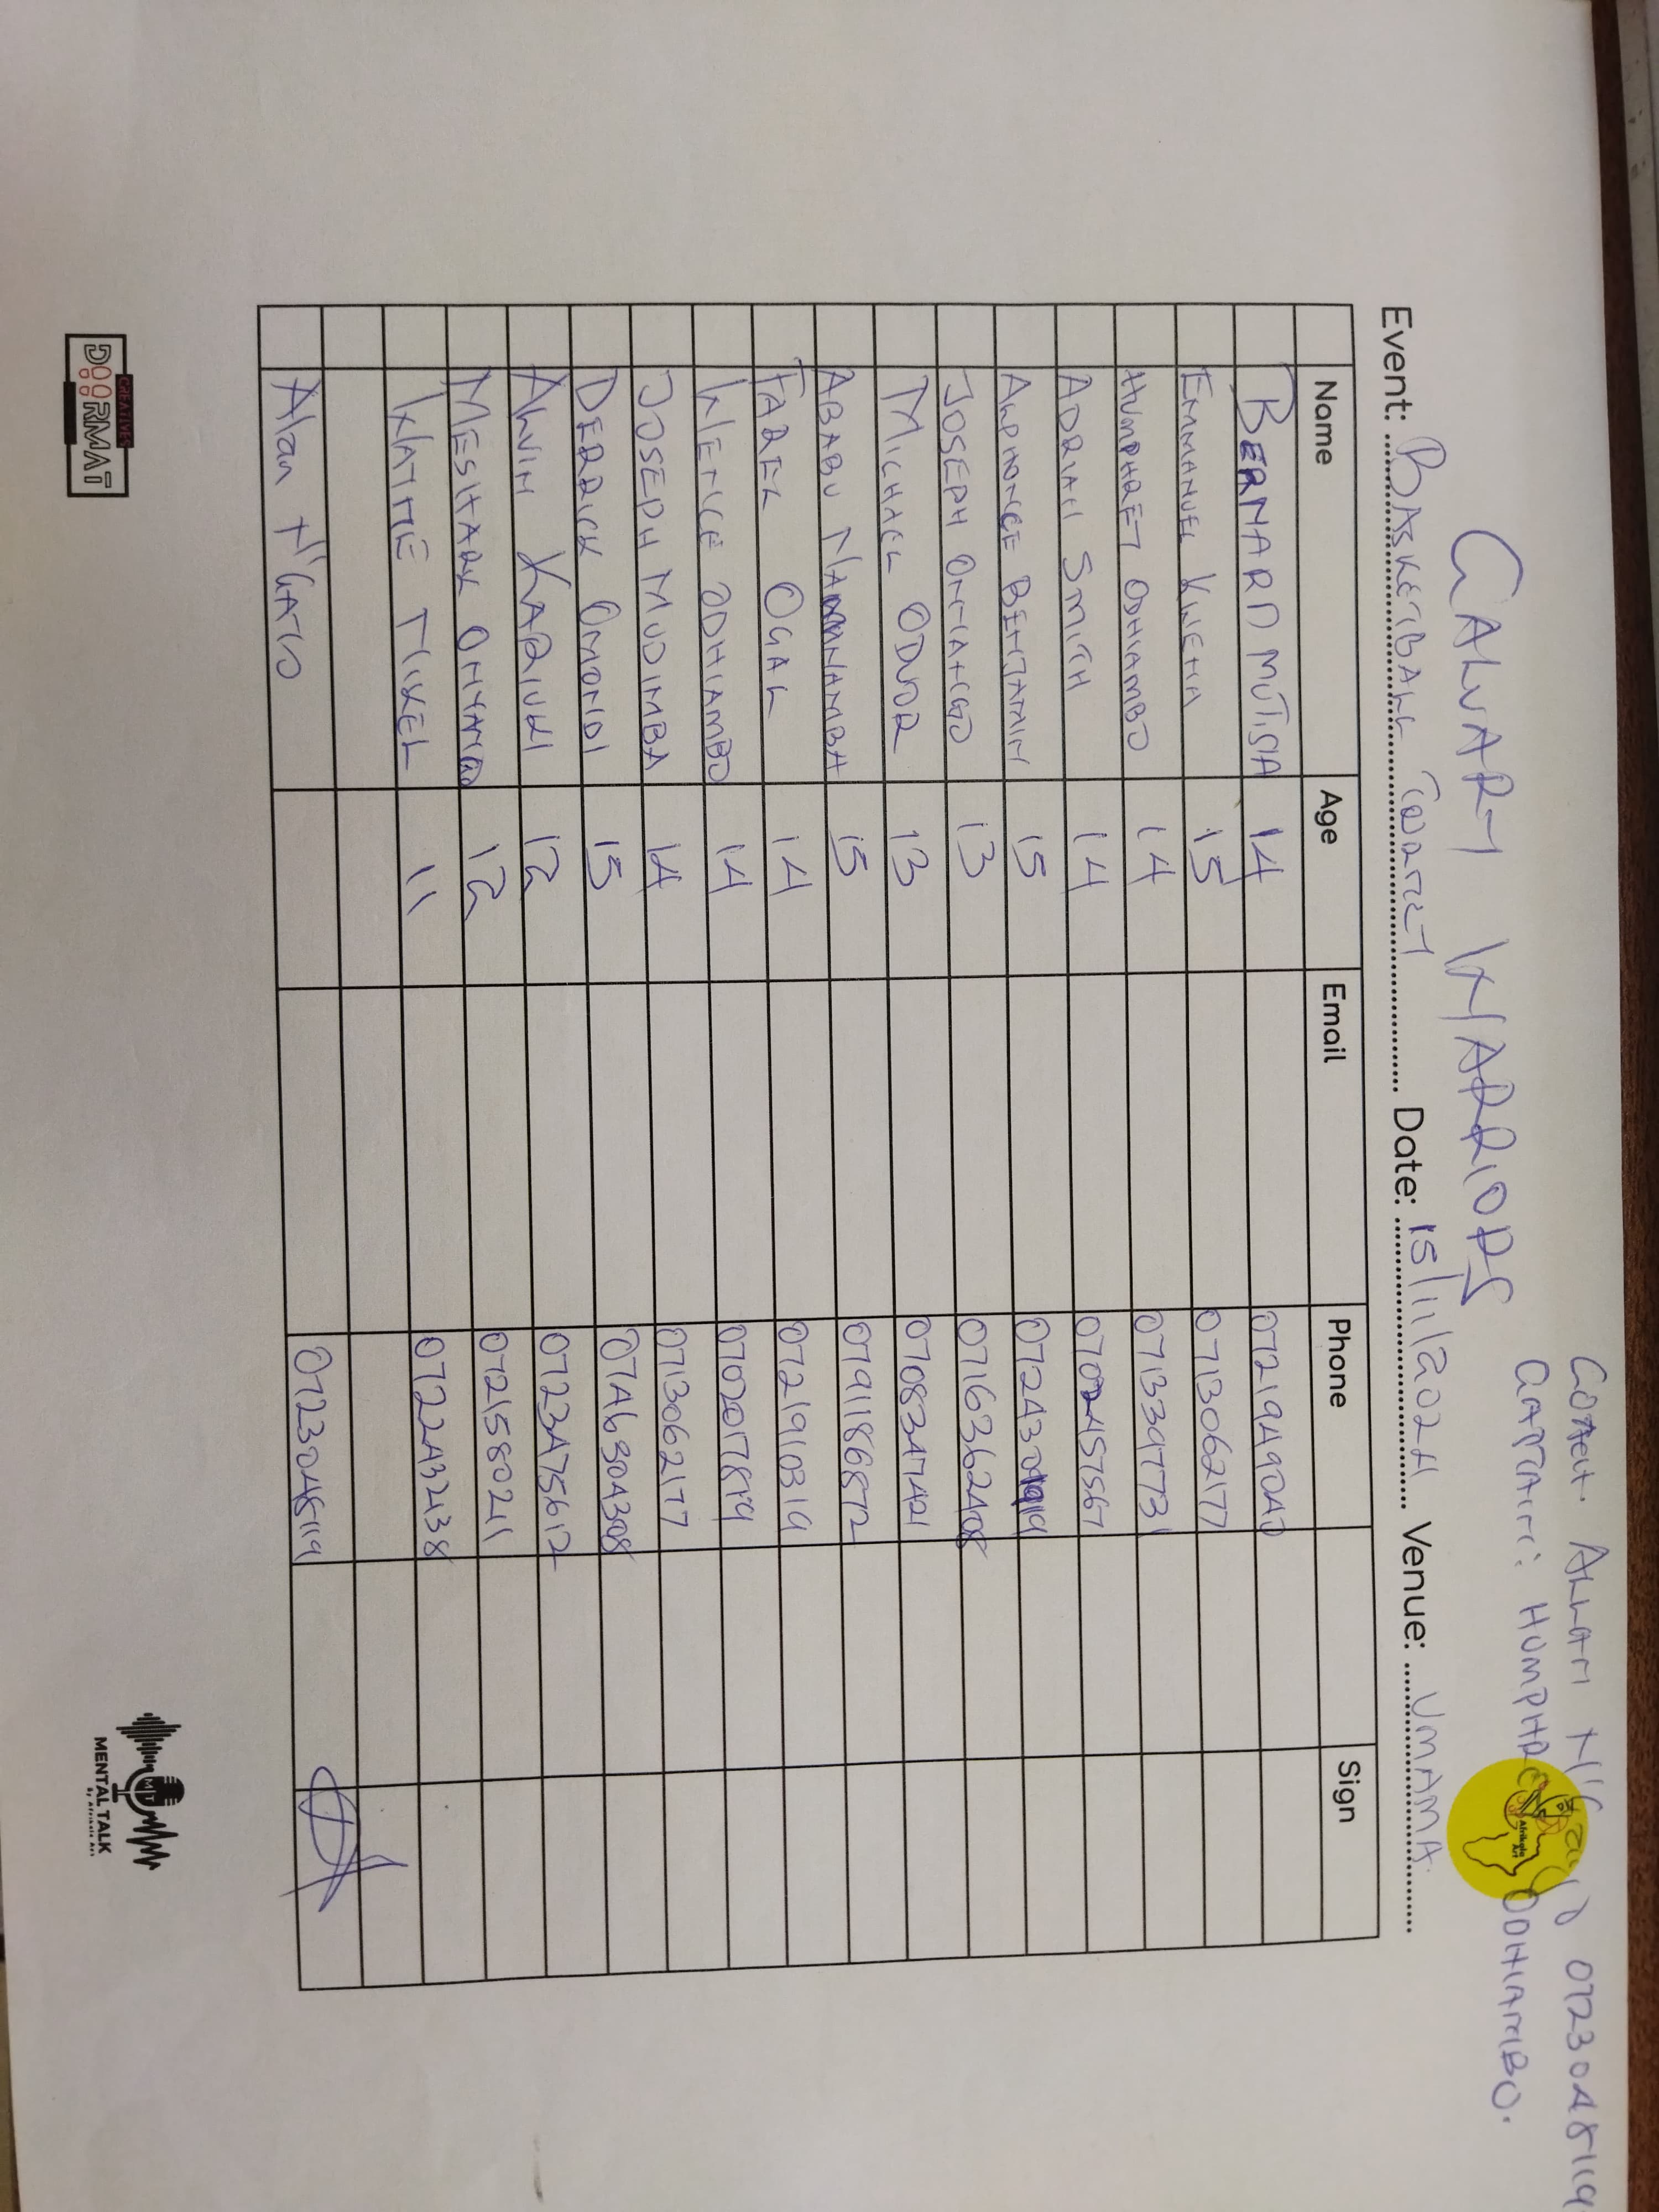 COACH: ALLAN N'GANYO 0723048119
CAPTAIN: HUMPHREY ODHIAMBO.
CALVARY WARRIORS
Afrikalo Art
Event: BASKETBALL TOURNEY Date: 15/11/2024 Venue: UMAMA.
Name Age Email Phone Sign
BERNARD MUTISA 14 0721949040
EMMANUEL KWEHA 15 0713062177
HUMPHREY ODHIAMBO 14 0713397731
ADRIAN SMITH 14 0702457567
ALPHONCE BENJAMIN 15
JOSEPH ONYANGO 13 0716362408
MICHAEL ODUOR 13 0708347421
ABABU NAMWAMBA 15 0791186872
FAREL OGAL 14 0721910319
WENCE ODHIAMBO 14 0702017819
JOSEPH MUDIMBA 14 0713062177
DERRICK OMONDI 15 0746304308
ALVIN KARIUKI 12 0723475612
MESHACK ONYANGO 12 0721580241
WAYNE MIKEL 11 0722432438
Alan 0723048119
CREATIVES
DOORMAT
MT
MENTAL TALK
By Afrikalo Art